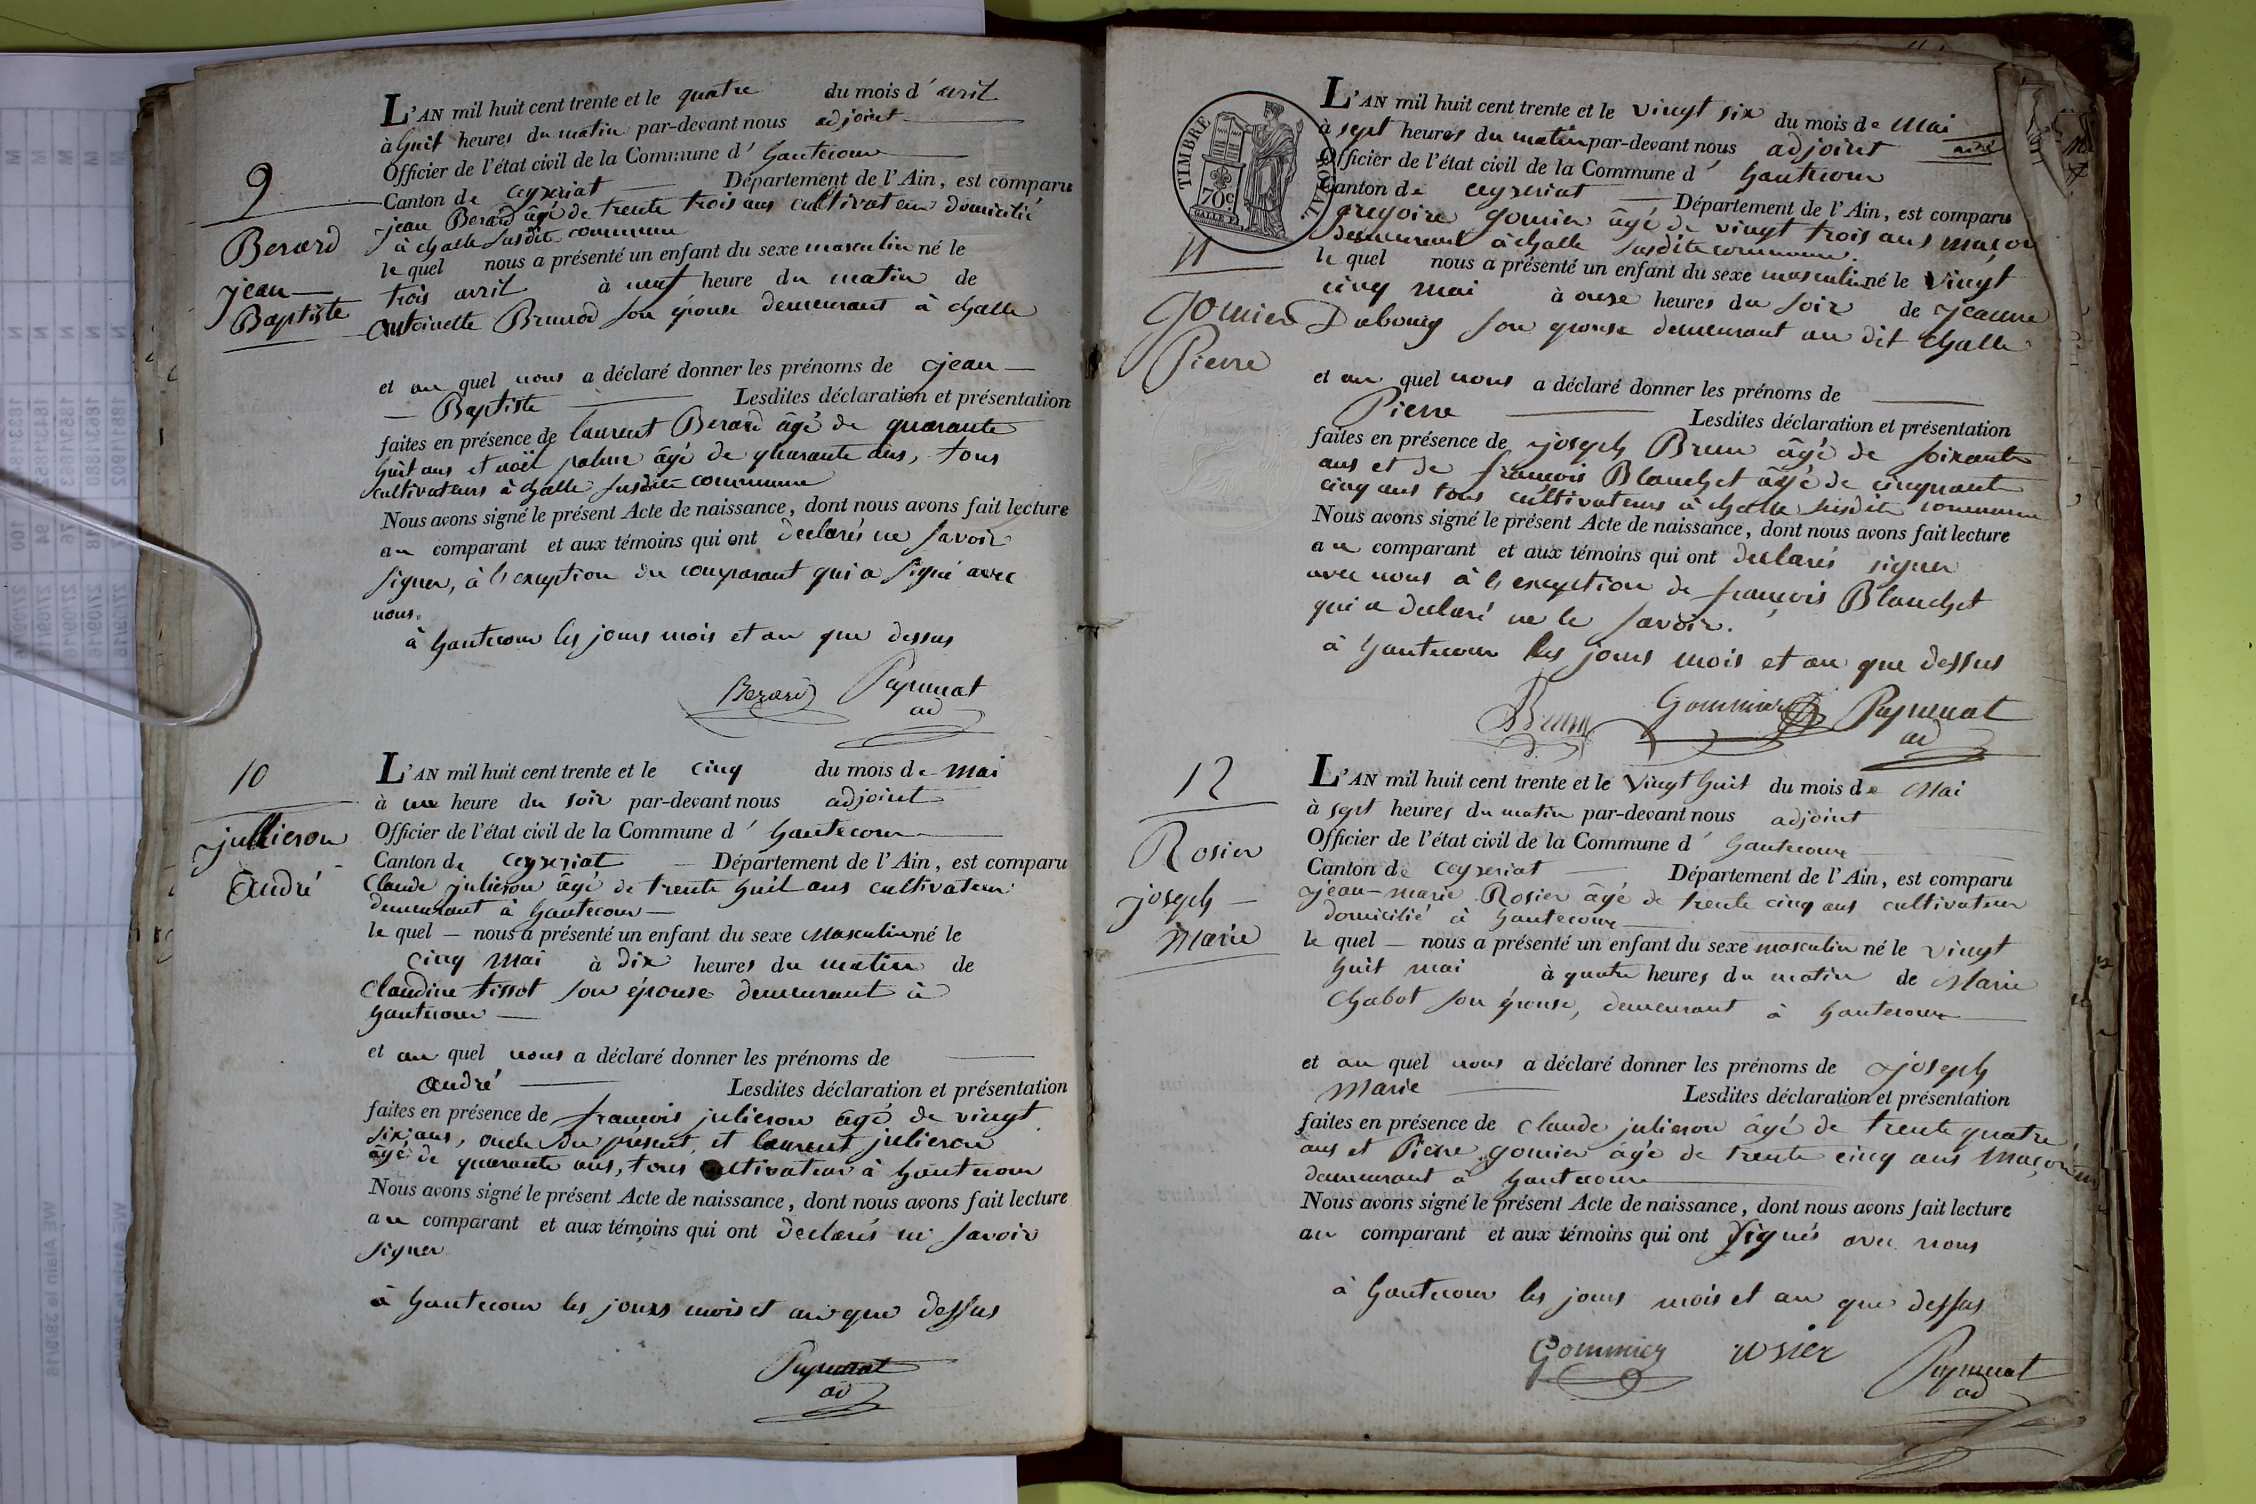 9
Berard
jean
Baptiste
L'AN mil huit cent trente et le quatre du mois d'avril
à huit heures du matin par-devant nous adjoint
Officier de l'état civil de la Commune d'hautecour
Canton de ceyzeriat Département de l'Ain, est comparu
jean Berard âgé de trente trois ans cultivateur domicilié
à challe susdite commune
le quel nous a présenté un enfant du sexe masculin né le
trois avril à neuf heure du matin de
antoinette Brunod son épouse demeurant à challe
et au quel nous a déclaré donner les prénoms de jean
Baptiste Lesdites déclaration et présentation
faites en présence de laurent Berard âgé de quarante
huit ans et noël âgé de quarante ans, tous
cultivateurs à challe susdite commune
Nous avons signé le présent Acte de naissance, dont nous avons fait lecture
au comparant et aux témoins qui ont declarés ne savoir
signer, à l'exception du comparant qui a signé avec
nous.
à hautecour les jours mois et an que dessus
Berard
ad
10
jullieron
André
L'AN mil huit cent trente et le cinq du mois de mai
à une heure du soir par-devant nous adjoint
Officier de l'état civil de la Commune d'hautecour
Canton de ceyzeriat Département de l'Ain, est comparu
Claude julieron âgé de trente huit ans cultivateur
demeurant à hautecour
le quel nous a présenté un enfant du sexe masculin né le
cinq mai à dix heures du matin de
Claudine tissot son épouse demeurant à
hautecour
et au quel nous a déclaré donner les prénoms de
André Lesdites déclaration et présentation
faites en présence de françois julieron âgé de vingt
six ans, oncle du présent, et laurent julieron
âgé de quarante ans, tous cultivateur à hautecour
Nous avons signé le présent Acte de naissance, dont nous avons fait lecture
au comparant et aux témoins qui ont declarés ne savoir
signer
à hautecour les jours mois et an que dessus
ad
TIMBRE ROYAL.
70c
11
Gomier
Pierre
L'AN mil huit cent trente et le vingt six du mois de mai
à sept heures du matin par-devant nous adjoint
Officier de l'état civil de la Commune d'hautecour
Canton de ceyzeriat Département de l'Ain, est comparu
gregoire gomier âgé de vingt trois ans maçon
demeurant à challe susdite commune.
le quel nous a présenté un enfant du sexe masculin né le vingt
cinq mai à onze heures du soir de jeanne
Dubourg son épouse demeurant au dit challe
et au quel nous a déclaré donner les prénoms de
Pierre Lesdites déclaration et présentation
faites en présence de joseph Brun âgé de soixante
ans et de françois Blanchet âgé de cinquante
cinq ans tous cultivateurs à challe susdite commune
Nous avons signé le présent Acte de naissance, dont nous avons fait lecture
au comparant et aux témoins qui ont declarés signer
avec nous à l'exception de françois Blanchet
qui a declaré ne le savoir.
à hautecour les jours mois et an que dessus
Brun Gommier
ad
12
Rosier
joseph
Marie
L'AN mil huit cent trente et le vingt huit du mois de Mai
à sept heures du matin par-devant nous adjoint
Officier de l'état civil de la Commune d'hautecour
Canton de ceyzeriat Département de l'Ain, est comparu
jean-marie Rosier âgé de trente cinq ans cultivateur
domicilié à hautecour
le quel nous a présenté un enfant du sexe masculin né le vingt
huit mai à quatre heures du matin de Marie
Chabot son épouse, demeurant à hautecour
et au quel nous a déclaré donner les prénoms de joseph
marie Lesdites déclaration et présentation
faites en présence de Claude julieron âgé de trente quatre
ans et Pierre gomier âgé de trente cinq ans maçon
demeurant à hautecour
Nous avons signé le présent Acte de naissance, dont nous avons fait lecture
au comparant et aux témoins qui ont signés avec nous
à hautecour les jours mois et an que dessus
Gommier rosier
ad